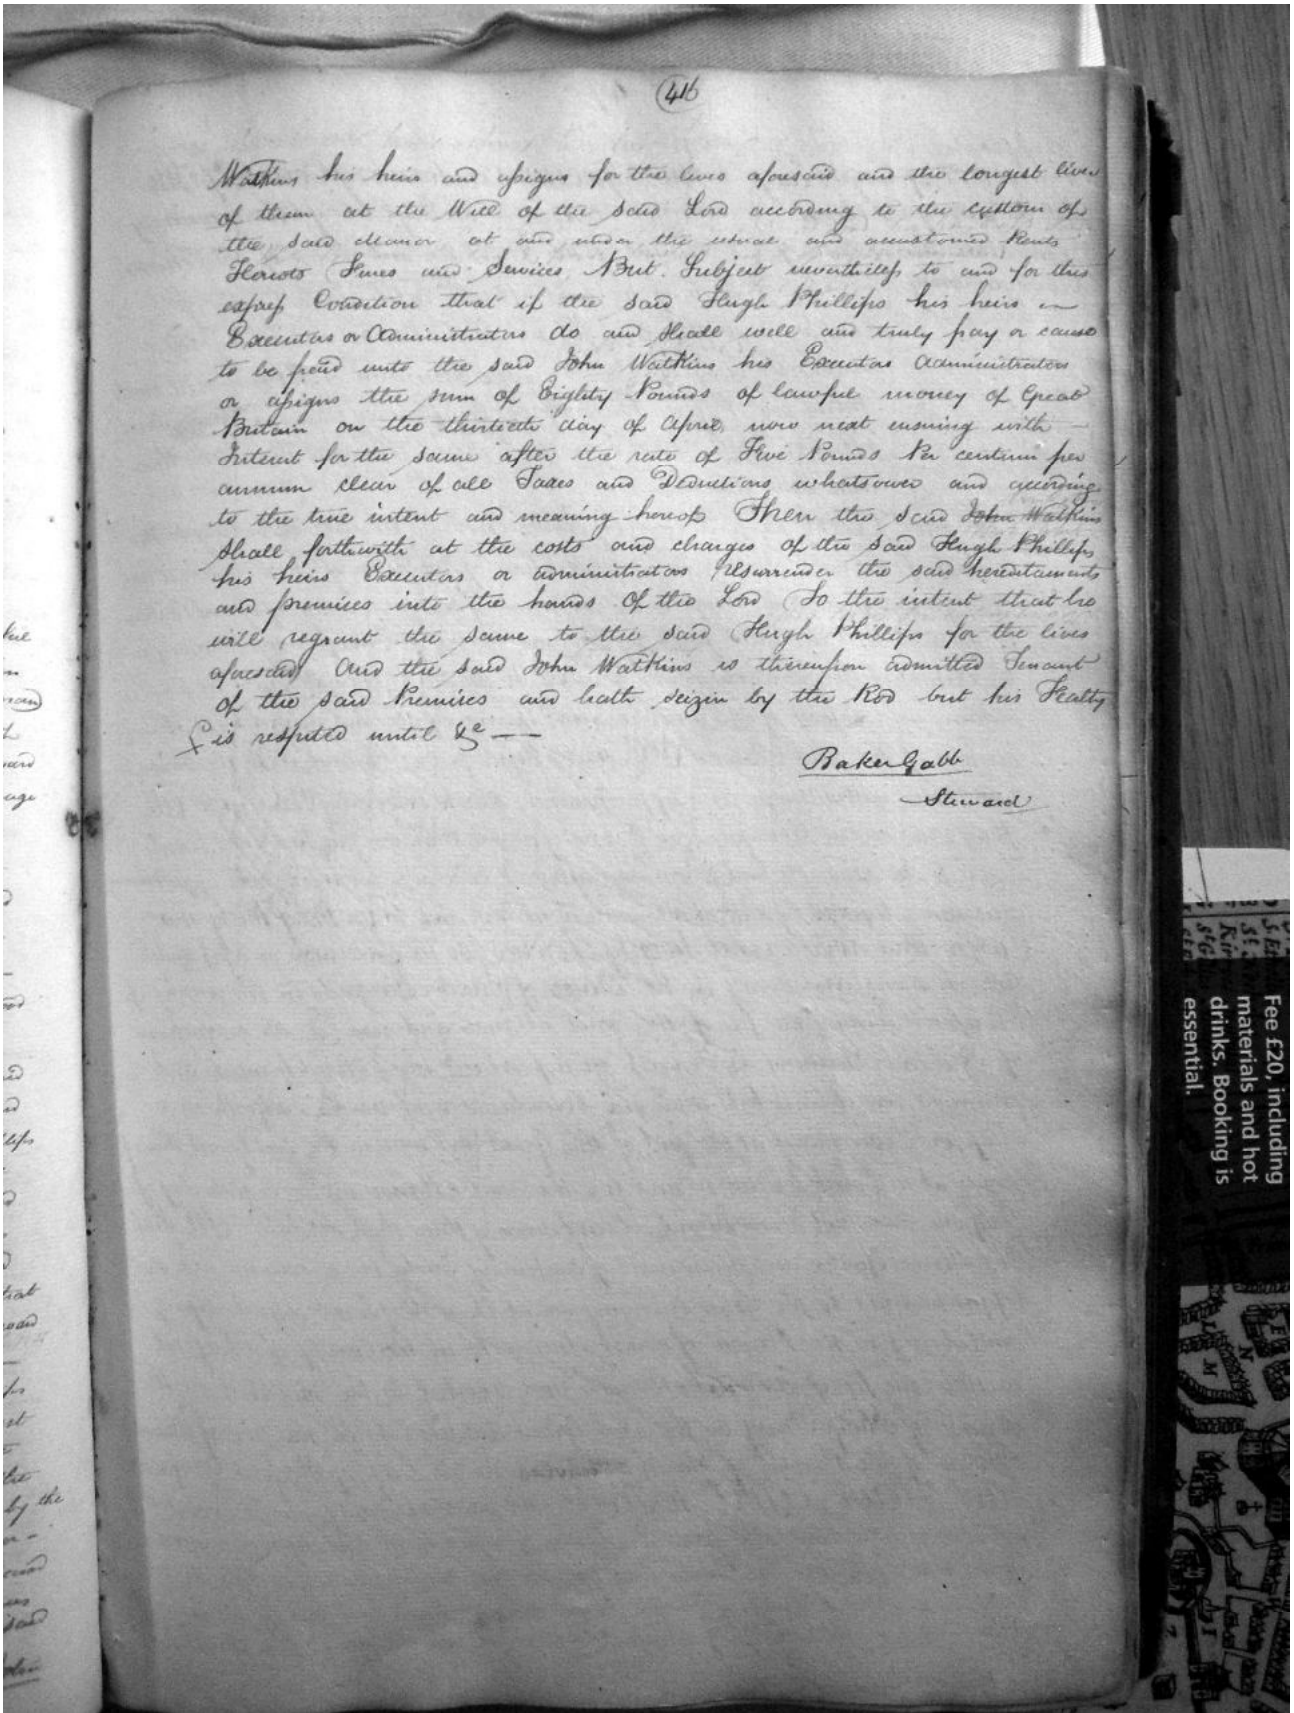 416
Watkins his heirs and assigns for the lives aforesaid and the longest liver
of them at the Will of the said Lord according to the custom of
the said Manor at and under the usual and accustomed Rents
Heriots Fines and Services But Subject nevertheless to and for this
express Condition that if the said Hugh Phillips his heirs —
Executors or Administrators do and shall well and truly pay or cause
to be paid unto the said John Watkins his Executors Administrators
or assigns the sum of Eighty Pounds of lawful money of Great
Britain on the thirtieth day of April now next ensuing with —
Interest for the same after the rate of Five Pounds Per centum per
annum clear of all Taxes and Deductions whatsoever and according
to the true intent and meaning hereof Then the said John Watkins
shall forthwith at the costs and charges of the said Hugh Phillips
his heirs Executors or administrators resurrender the said hereditaments
and premises into the hands of the Lord To the intent that he
will regrant the same to the said Hugh Phillips for the lives
aforesaid And the said John Watkins is thereupon admitted Tenant
of the said Premises and hath seizin by the Rod but his Fealty
is respited until &c —
Baker Gabb
Steward
by the
said
Fee £20, including
materials and hot
drinks. Booking is
essential.